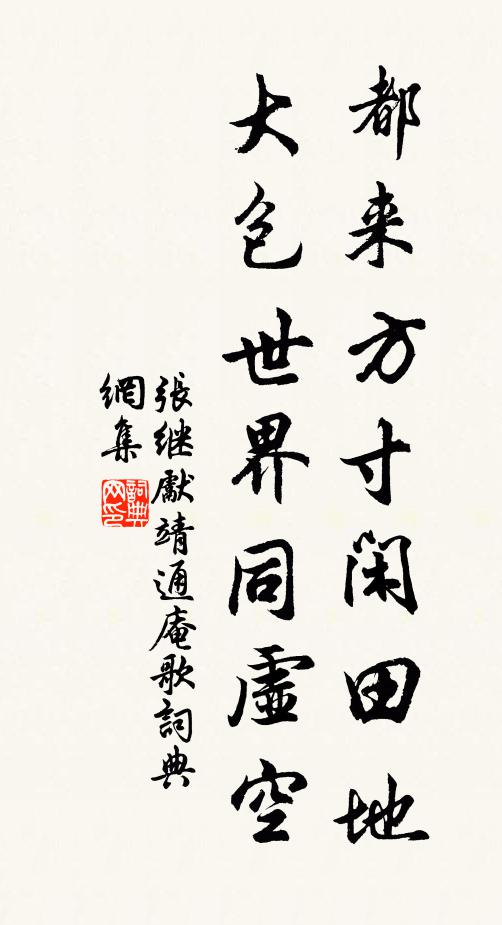 都来方寸闲田地
大包世界同虛空
張继獻靖通庵歌詞典
網集
詞典
网印